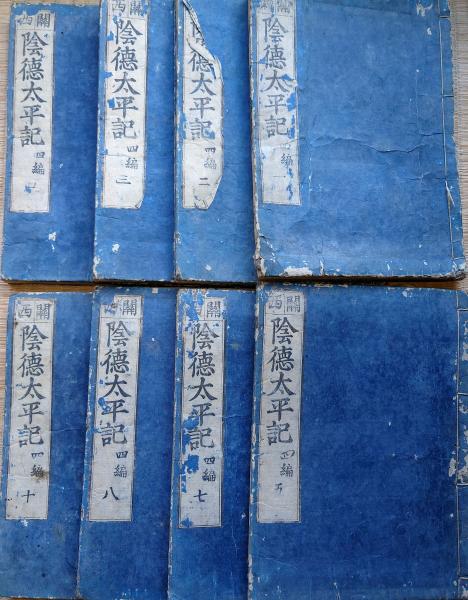 關西
陰德太平記
四編
關西
陰德太平記
四編
二
關西
陰德太平記
四編
三
關西
陰德太平記
四編
關西
陰德太平記
四編
關西
陰德太平記
四編
七
關西
陰德太平記
四編
八
關西
陰德太平記
四編
十